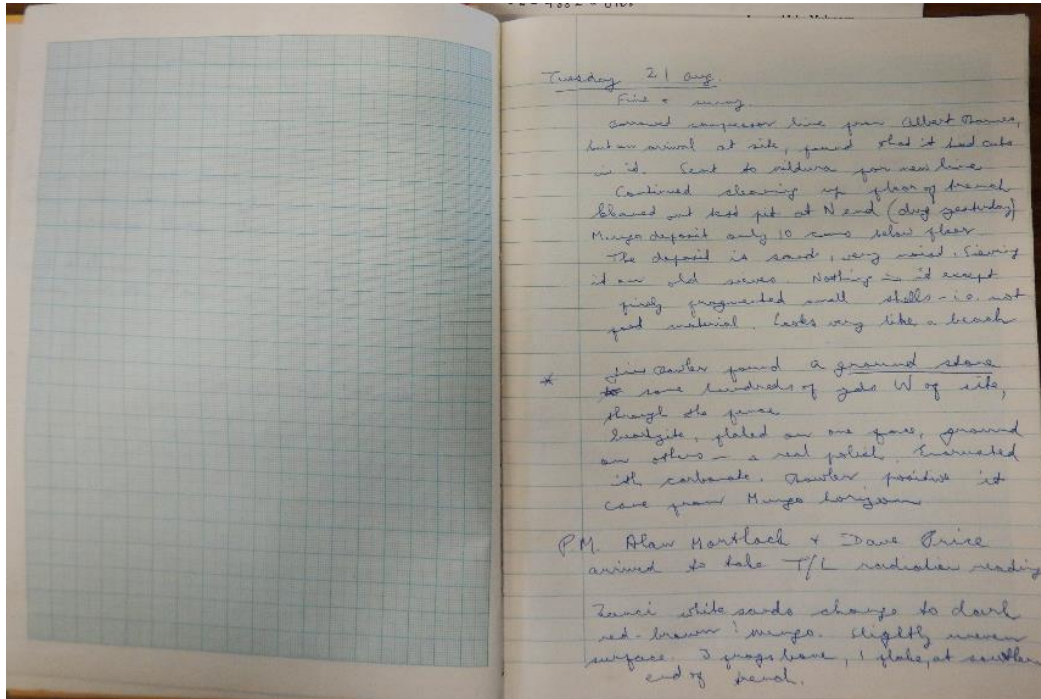 Tuesday 21 Aug.
Fine & sunny.
compressor line from Albert Barnes,
but on arrival at site, found that it had cuts
in it. Sent to Mildura for new line
Continued cleaning up floor of trench
Cleaned out test pit at N end (dug yesterday)
Mungo deposit only 10 cms below floor.
The deposit is sand, very moist. Sieving
it on old sieves. Nothing in it except
finely fragmented small shells - i.e. not
food material. Looks very like a beach
* Jim Bowler found a ground stone
some hundreds of yds W of site,
through the fence
Quartzite, flaked on one face, ground
on others - a real polish. Encrusted
with carbonate. Bowler positive it
came from Mungo horizon
P.M. Alan Mortlock & Dave Price
arrived to take T/L radiation reading
Zanci white sands change to dark
red-brown Mungo. Slightly uneven
surface. 3 frags bone, 1 flake, at southern
end of trench.